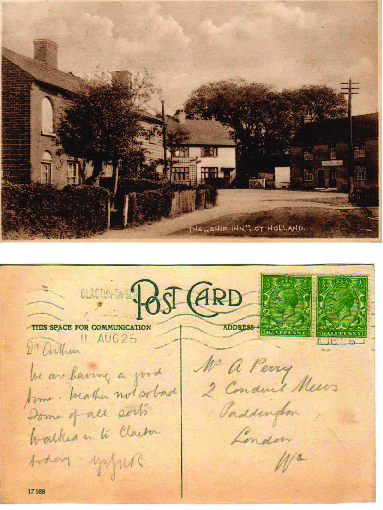 THE "SHIP INN", GT HOLLAND.
CLACTON-ON-SEA
11 AUG 25
POST CARD
THIS SPACE FOR COMMUNICATION
ADDRESS
HALFPENNY
HALFPENNY
Dr Arthur
We are having a good
time. Weather not so bad
Some of all sorts
Walked in to Clacton
Mr A Perry
2 Conduit Mews
Paddington
London
W2
17988